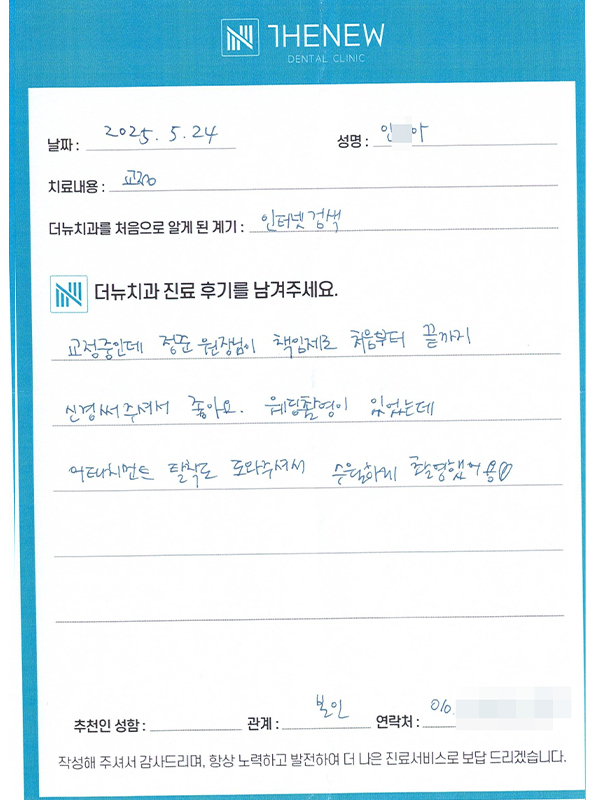 THENEW
DENTAL CLINIC
날짜 : 2025. 5. 24 성명 : 인 아
치료내용 : 교정
더뉴치과를 처음으로 알게 된 계기 : 인터넷 검색
더뉴치과 진료 후기를 남겨주세요.
교정중인데 정준 원장님이 책임제로 처음부터 끝까지
신경써주셔서 좋아요. 웨딩촬영이 있었는데
어태치먼트 탈착도 도와주셔서 수월하게 촬영했어용♡
추천인 성함 : 관계 : 본인 연락처 : 010.
작성해 주셔서 감사드리며, 항상 노력하고 발전하여 더 나은 진료서비스로 보답 드리겠습니다.